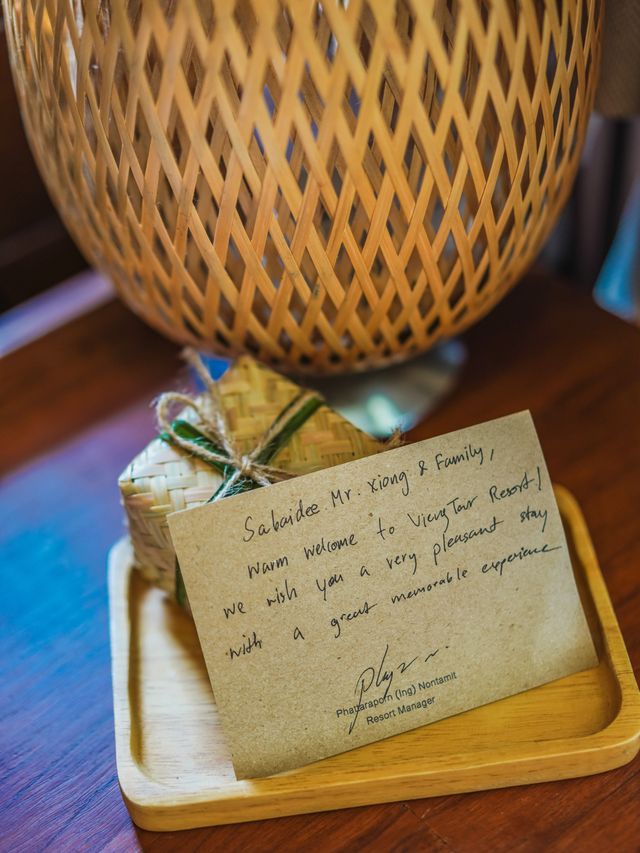 Sabaidee Mr. Xiong & Family,
Warm welcome to ViengTara Resort!
we wish you a very pleasant stay
with a great memorable experience
Phattaraporn (Ing) Nontamit
Resort Manager